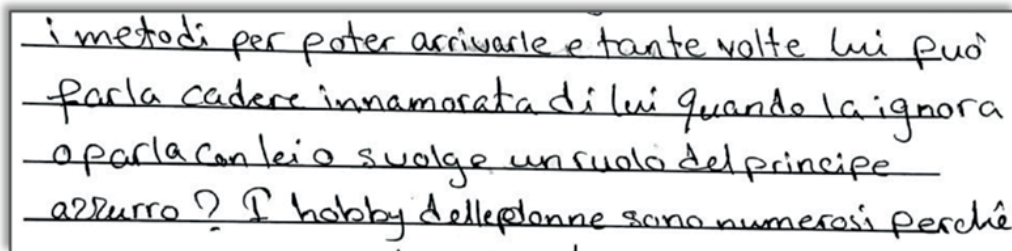 i metodi per poter arrivarle e tante volte lui può
farla cadere innamorata di lui quando la ignora
o parla con lei o svolge un ruolo del principe
azzurro? I hobby delle donne sono numerosi perchè